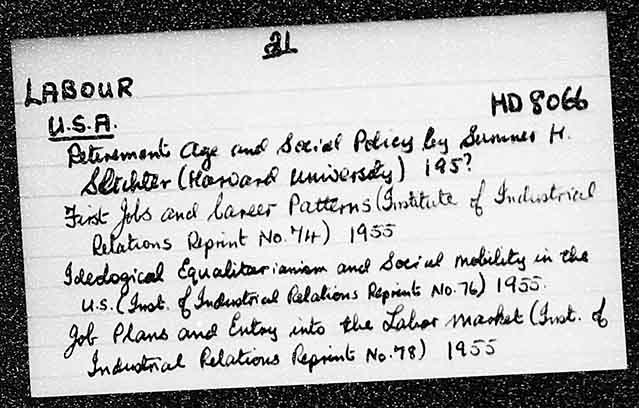 21
LABOUR
U.S.A.
HD 8066
Retirement Age and Social Policy by Sumner H.
Slichter (Harvard University) 195?
First Jobs and Career Patterns (Institute of Industrial
Relations Reprint No. 74) 1955
Ideological Equalitarianism and Social mobility in the
U.S. (Inst. of Industrial Relations Reprints No. 76) 1955.
Job Plans and Entry into the Labor Market (Inst. of
Industrial Relations Reprints No. 78) 1955